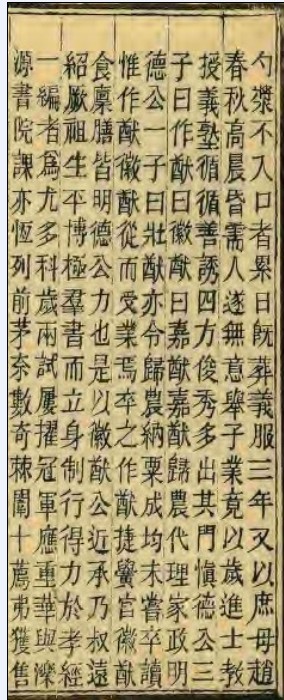 勺漿不入口者累日既葬義服三年又以庶母趙
春秋高晨昏需人遂無意舉子業竟以歲進士教
授義塾循循善誘四方俊秀多出其門慎德公三
子曰作猷曰徽猷曰嘉猷嘉猷歸農代理家政明
德公一子曰壯猷亦令歸農納粟成均未嘗卒讀
惟作猷徽猷從而受業焉卒之作猷捷黌宮徽猷
食廩膳皆明德公力也是以徽猷公近承乃叔遠
紹厥祖生平博極羣書而立身制行得力於孝經
一編者爲尤多科歲兩試屢擢冠軍應重華與濼
源書院課亦恆列前茅奈數奇棘闈十薦弗獲售